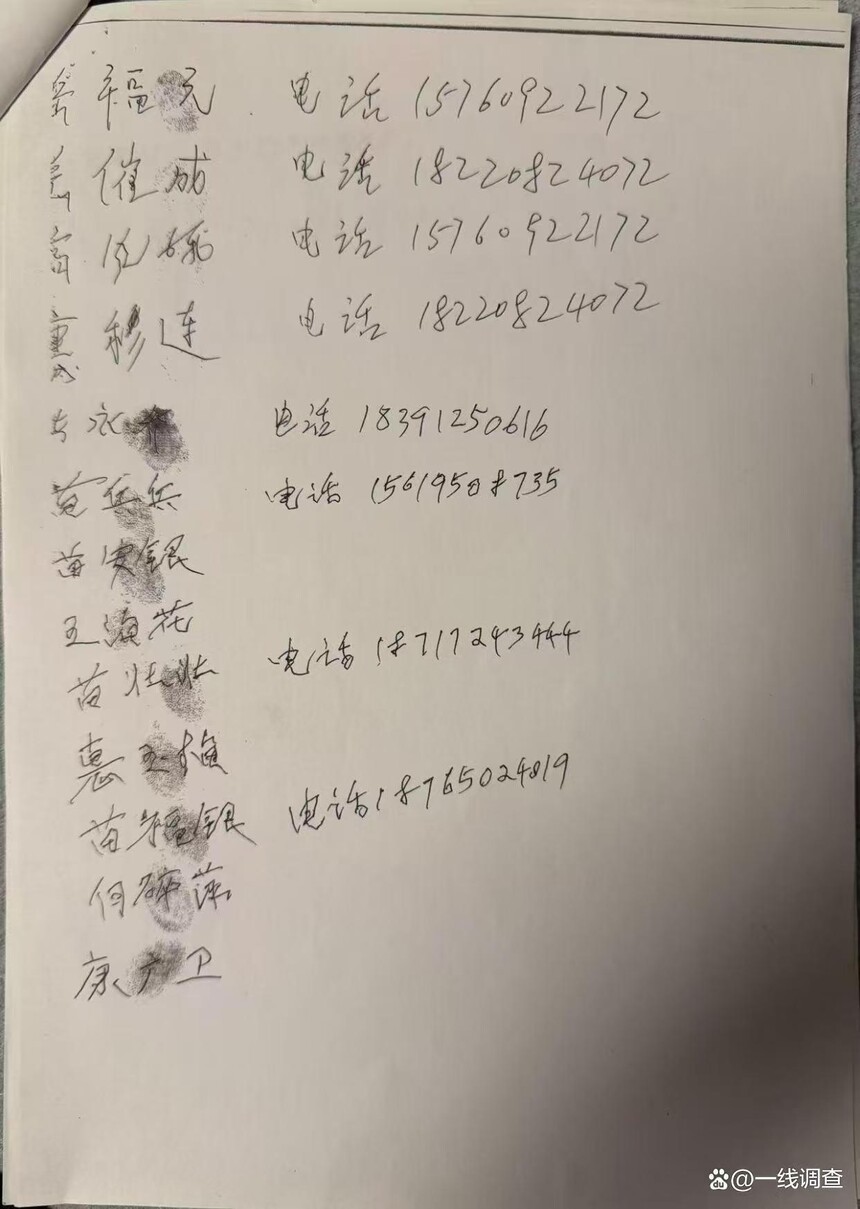 福元 电话 15760922172
催成 电话 18220824072
电话 15760922172
惠 移连 电话 18220824072
电话 18391250616
苗兵兵 电话 15619508735
苗安银
王海花
苗壮壮 电话 18717243444
惠玉
苗福银 电话 18765024819
何萍
康广卫
@一线调查